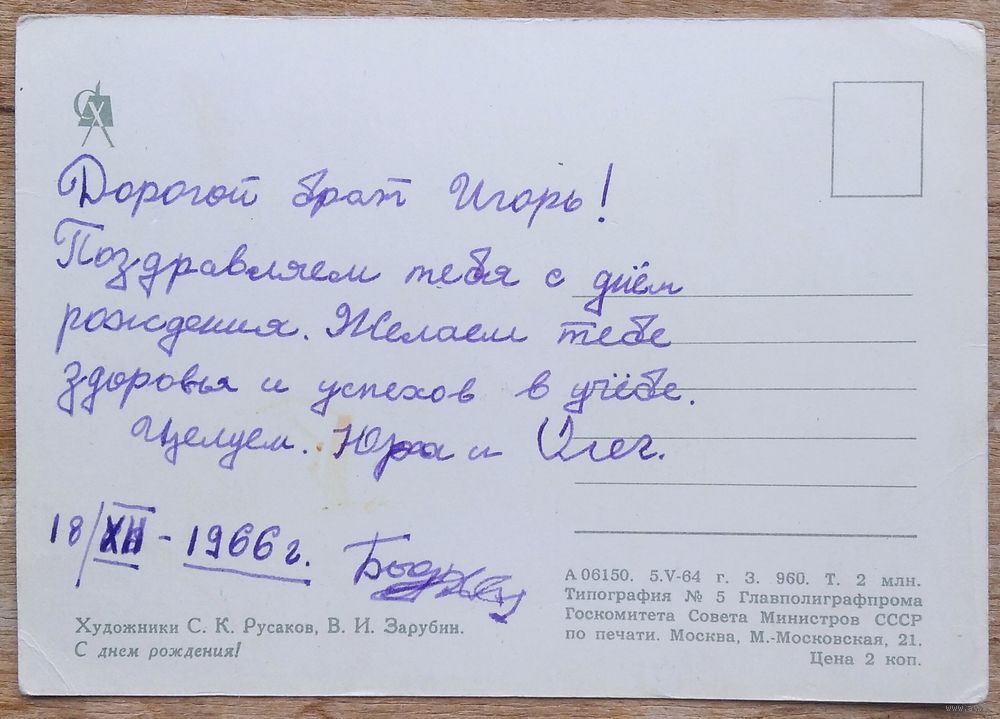 СХ
Дорогой брат Игорь!
Поздравляем тебя с днём
рождения. Желаем тебе
здоровья и успехов в учёбе.
Целуем. Юра и Олег.
18/XII - 1966 г.
Художники С. К. Русаков, В. И. Зарубин.
С днем рождения!
А 06150. 5.V-64 г. З. 960. Т. 2 млн.
Типография № 5 Главполиграфпрома
Госкомитета Совета Министров СССР
по печати. Москва, М.-Московская, 21.
Цена 2 коп.